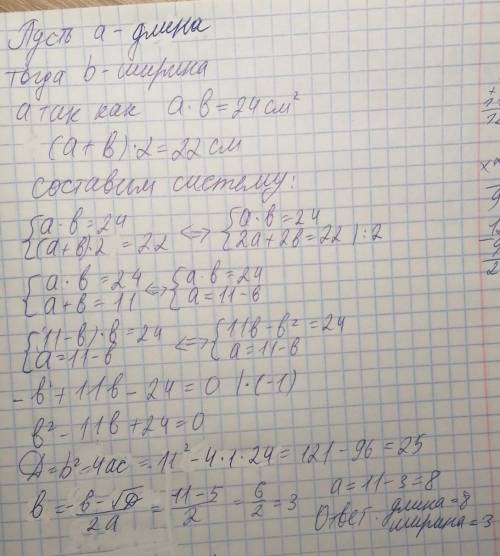 Пусть a - длина
тогда b - ширина
а так как a · b = 24 см²
(a + b) · 2 = 22 см
составим систему:
{a · b = 24 {(a+b)·2 = 22 <=> {a · b = 24 {2a + 2b = 22 | : 2
{a · b = 24 {a + b = 11 <=> {a · b = 24 {a = 11 - b
{(11 - b) · b = 24 {a = 11 - b <=> {11b - b² = 24 {a = 11 - b
- b² + 11b - 24 = 0 | · (-1)
b² - 11b + 24 = 0
D = b² - 4ac = -11² - 4 · 1 · 24 = 121 - 96 = 25
b = (-b - √D)/2a = (11 - 5)/2 = 6/2 = 3
a = 11 - 3 = 8
Ответ: длина = 8
ширина = 3